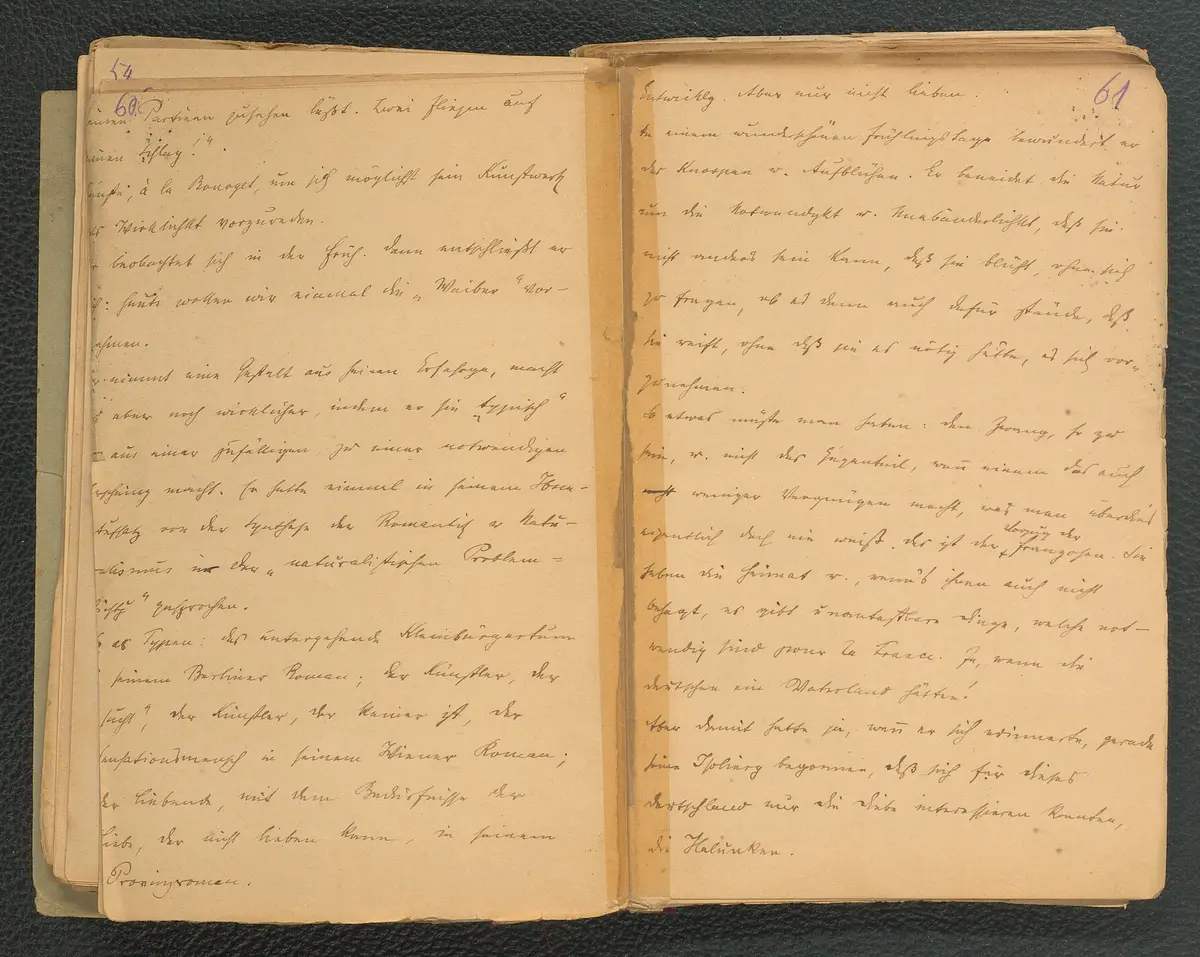 54
60.
Partieen zusehen läßt. Zwei Fliegen auf
einen Schlag!"
à la Bourget, um sich möglichst sein Kunstwerk
als Wirklichkt vorzureden.
beobachtet sich in der Früh. Dann entschließt er
sich: heute wollen wir einmal die „Weiber" vor-
nehmen.
Er nimmt eine Gestalt aus seinen, macht
sie aber noch wirklicher, indem er sie „typisch"
aus einer zufälligen zu einer notwendigen
Erscheinung macht. Er hatte einmal in seinem Ibsen-
aufsatz von der Synthese der Romantik u Natu-
ralismus in der „naturalistischen Problem-
" gesprochen.
Typen: das untergehende Kleinbürgertum
in seinem Berliner Roman; der Künstler, der
sucht", der Künstler, der keiner ist, der
Sensationsmensch in seinem Wiener Roman;
der Liebende, mit dem Bedürfnisse der
Liebe, der nicht lieben kann, in seinem
Provinzroman.
61
Entwicklg. Aber nur nicht lieben.
An einem wunderschönen Frühlingstage bewundert er
das Knospen u. Aufblühen. Er beneidet die Natur
um die Notwendgkt u. Unabänderlichkt, daß sie
nicht anders sein kann, daß sie blüht, ohne sich
zu fragen, ob es denn auch dafür stände, daß
sie reift, ohne daß sie es nötig hätte, es sich vor-
zunehmen.
So etwas müßte man haben: den Zwang, so zu
sein, u. nicht das Gegenteil, wenn einem das auch
weniger Vergnügen macht, was man überdies
eigentlich doch nie weiß. Das ist der Vorzug der Franzosen. Sie
haben die Heimat u., wenn's ihnen auch nicht
behagt, es gibt unantastbare Dinge, welche not-
wendig sind pour la France. Ja, wenn die
Deutschen ein Vaterland hätten!
Aber damit hatte ja, wenn er sich erinnerte, gerade
seine Isolierg begonnen, daß sich für dieses
Deutschland nur die Diebe interessieren konnten,
die Halunken.